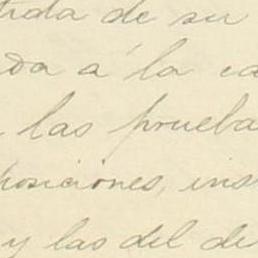 trada de su
da a la ca
las prueba
posiciones, ins
y las del de